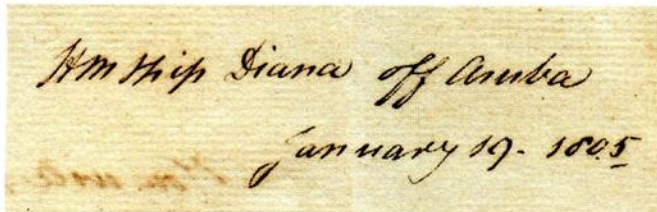 HM Ship Diana off Aruba
January 19. 1805